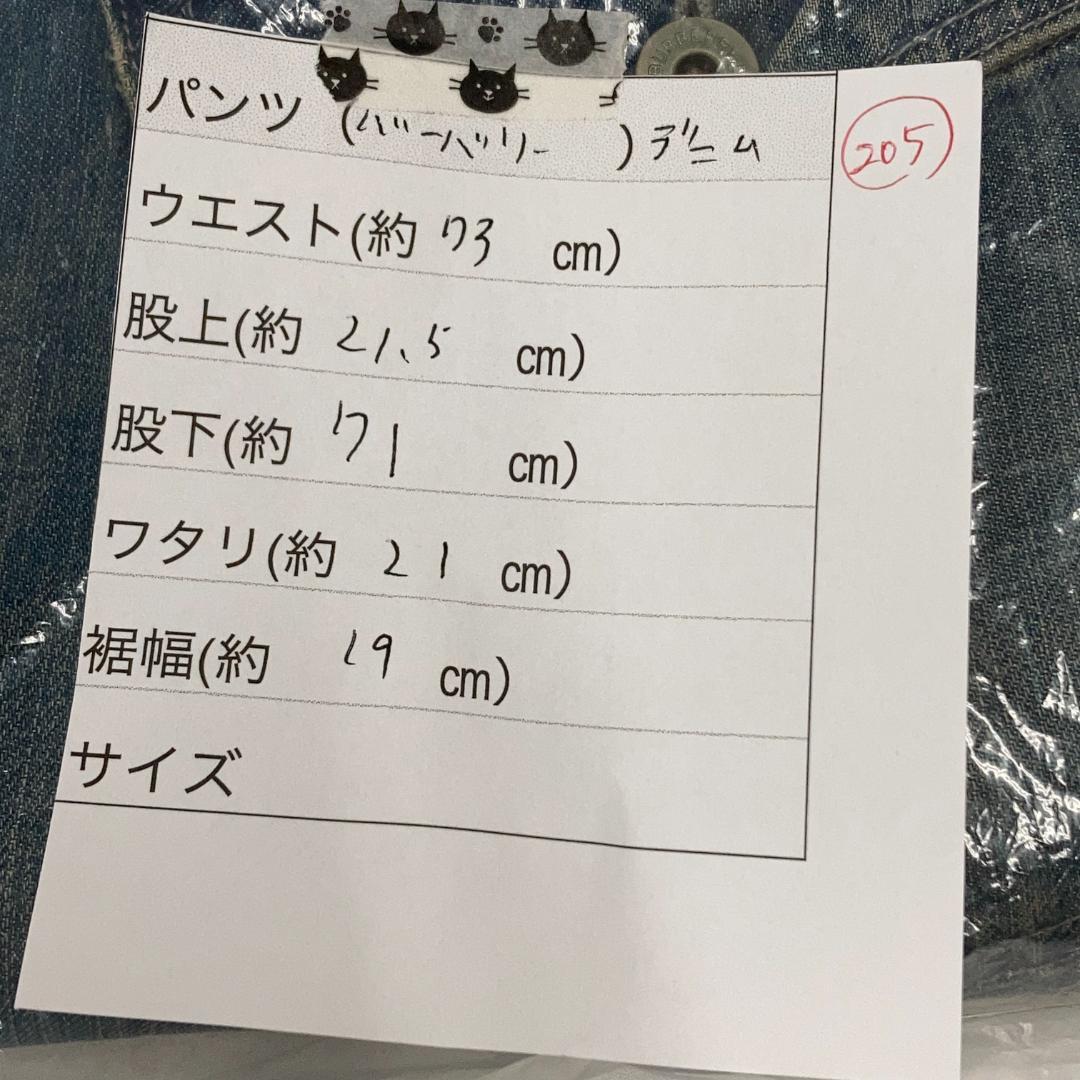 パンツ (バーバリー ) デニム
205
ウエスト(約 73 cm)
股上(約 21.5 cm)
股下(約 71 cm)
ワタリ(約 21 cm)
裾幅(約 19 cm)
サイズ